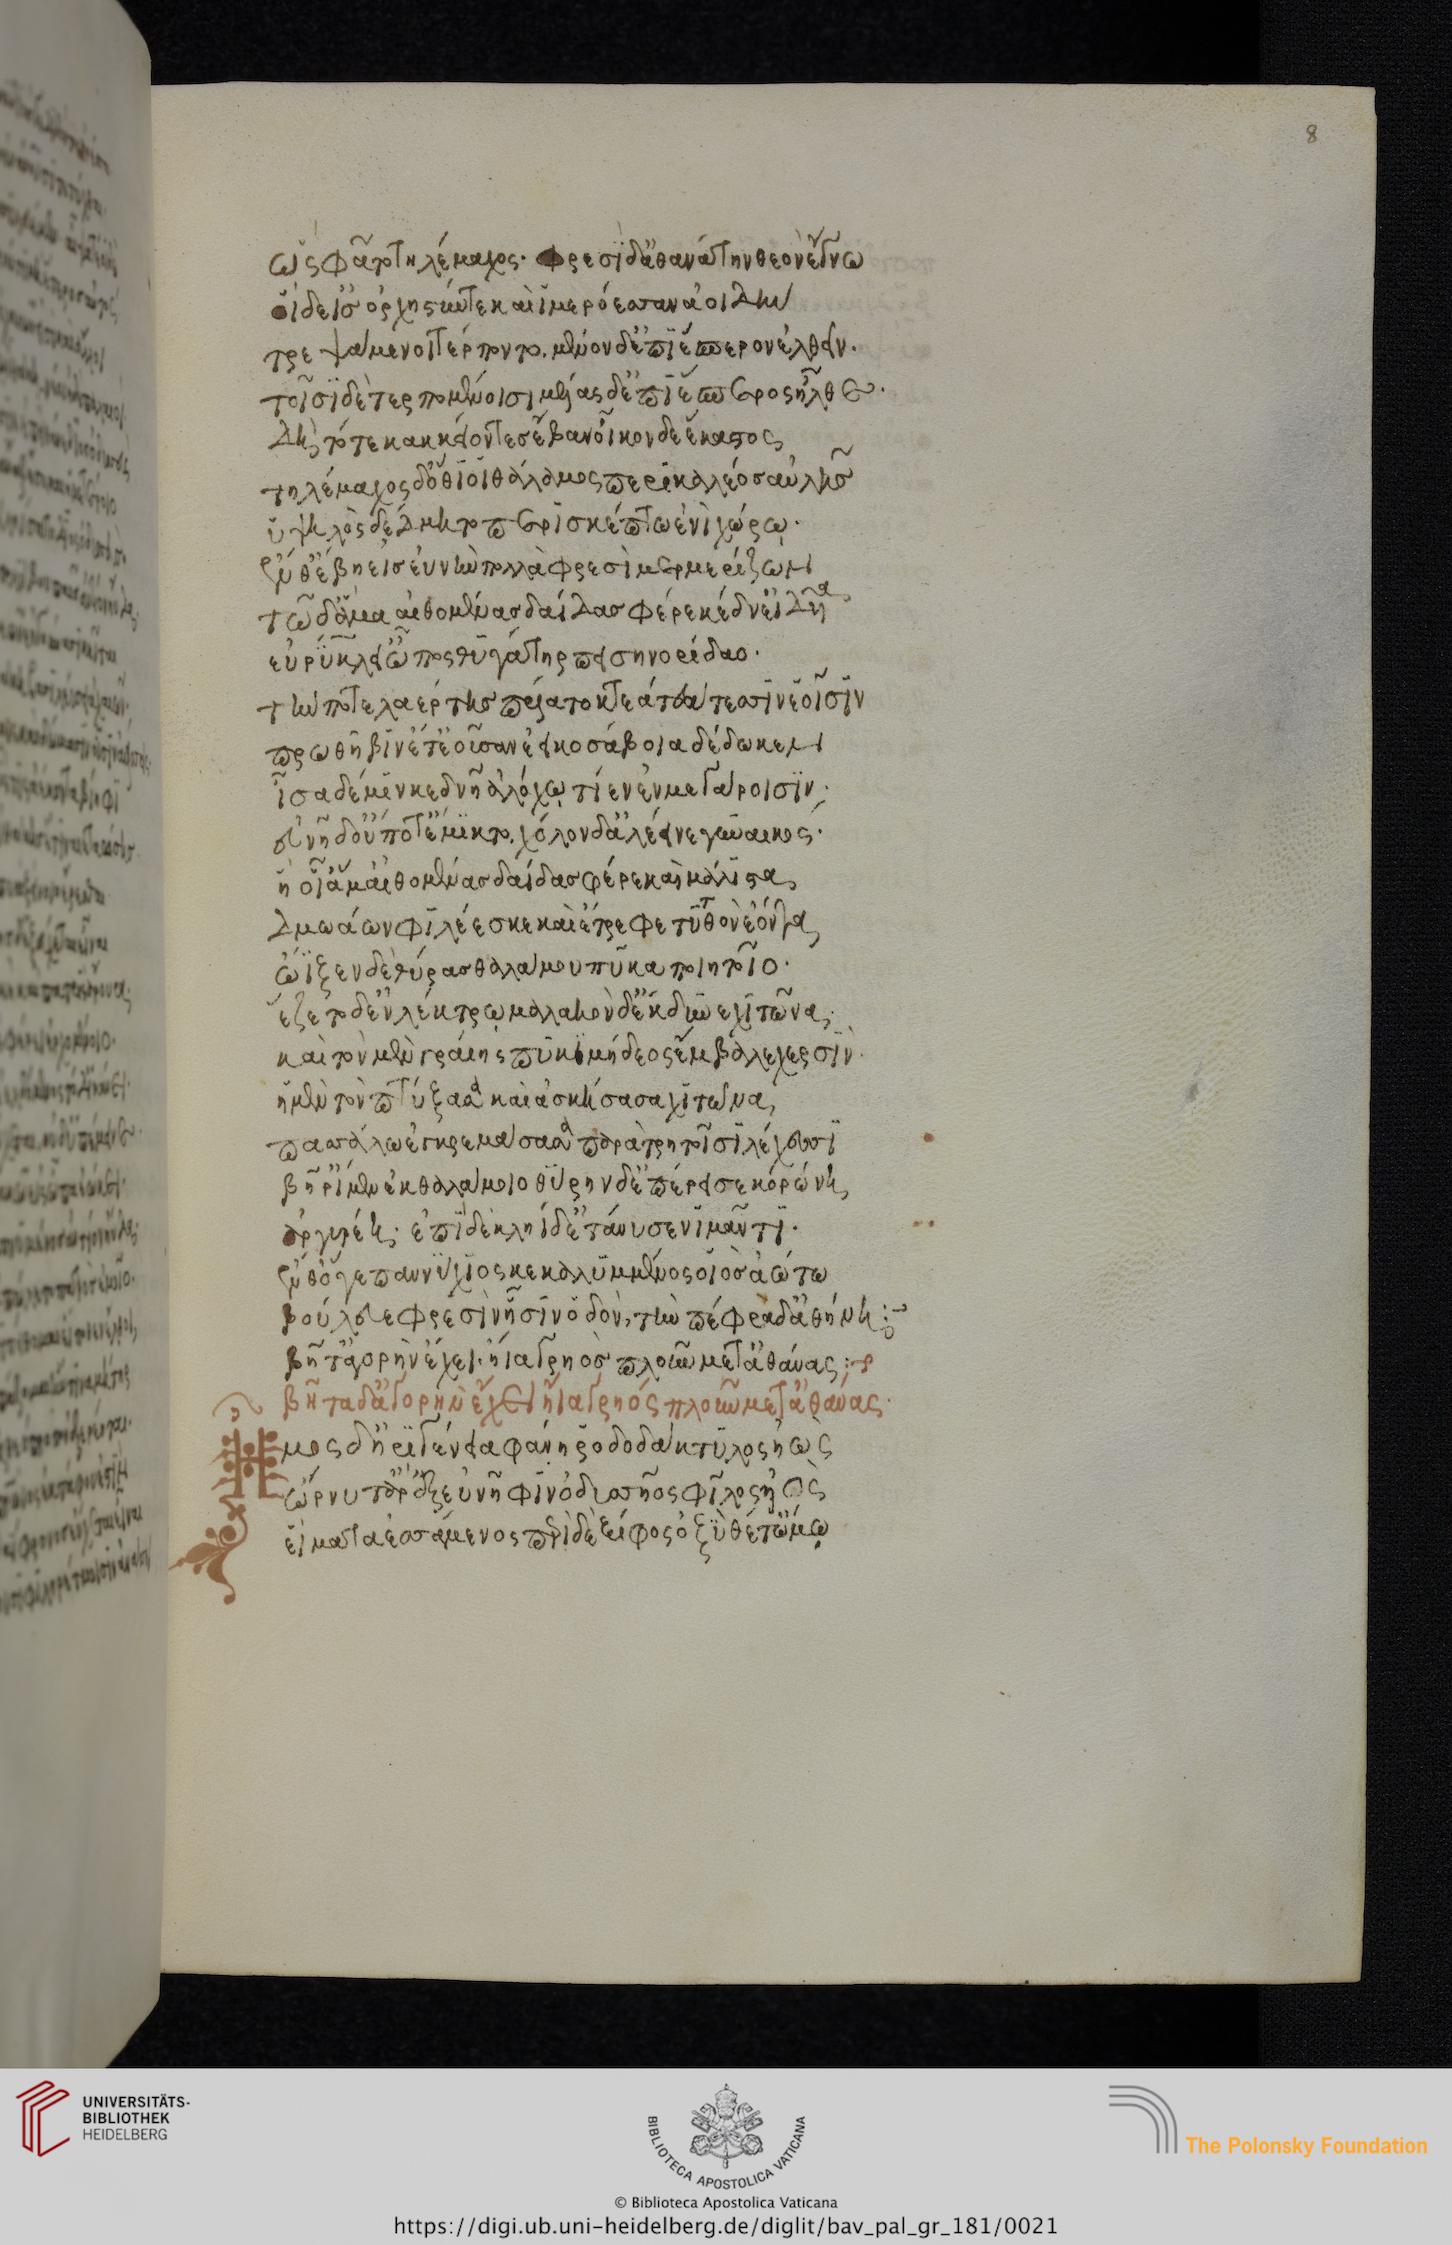 8
ὣς φάτο τηλέμαχος· φρεσὶ δ' ἀθανάτην θεὸν ἔγνω
οἱ δ' εἰς ὀρχηστύν τε καὶ ἱμερόεσσαν ἀοιδὴν
τρεψάμενοι τέρποντο. μένον δ' ἐπὶ ἕσπερον ἐλθεῖν.
τοῖσι δὲ τερπομένοισι μέλας δ' ἐπὶ ἕσπερος ἦλθε.
δὴ τότε κακκείοντες ἔβαν οἶκον δε ἕκαστος
τηλέμαχος δ' ὅθι οἱ θάλαμος περικαλέος αὐλῆς
ὑψηλὸς δέδμητο περισκέπτω ἐνὶ χώρῳ.
ἔνθ' ἔβη εἰς εὐνὴν πολλὰ φρεσὶ μερμερίζων
τῶ δ' ἄμα αἰθομένας δαίδας φέρε κέδν' εἰδυῖα
εὐρύκλει' ὦπος θυγάτηρ πεισηνορίδαο.
τήν ποτε λαέρτης πρίατο κτεάτεσσιν ἑοῖσιν
πρωθήβην ἔτ' ἐοῦσαν ἐεικοσάβοια δ' ἔδωκεν
ἶσα δέ μιν κεδνῆ ἀλόχῳ τίεν ἐν μεγάροισιν.
εὐνῆ δ' οὔποτ' ἔμικτο. χόλον δ' ἀλέεινε γυναικός.
ἥ οἱ ἅμ' αἰθομένας δαίδας φέρε καὶ μάλιστα
δμωάων φιλέεσκε καὶ ἔτρεφε τυτθὸν ἐόντα
ὤϊξεν δὲ θύρας θαλάμου πύκα ποιητοῖο.
ἕζετο δ' ἐν λέκτρῳ μαλακὸν δ' ἔκδυνε χιτῶνα.
καὶ τὸν μὲν γραίης πυκιμήδεος ἔμβαλε χερσίν.
ἡ μὲν τὸν πτύξασα καὶ ἀσκήσασα χιτῶνα
πασσάλω ἐγκρεμάσασα παρὰ τρητοῖσι λέχεσσι
βῆ ῥ' ἴμεν ἐκ θαλάμοιο θύρην δ' ἐπέρεισε κορώνη
ἀργυρέη. ἐπὶ δὲ κληίδ' ἐτάνυσεν ἱμάντι.
ἔνθ' ὅγε παννύχιος κεκαλυμμένος οἰὸς ἀώτω
βούλευε φρεσὶν ἧσιν ὁδὸν, τὴν πέφραδ' ἀθήνη:
βῆτ' ἀγορὴν ἔχει. ἠ ἰαγρηὸς πλοῦν μετ' ἀθάνας:
βῆτα δ' ἀγορὴν ἔχει ἠ ἰαγρηός πλοῦν μετ' ἀθάνας.
ἦμος δ' ἠριγένεια φάνη ῥοδοδάκτυλος ἠώς
ὤρνυτ' ἄρ' ἐξ εὐνῆφιν ὀδυσσῆος φίλος υἱὸς
εἵματα ἑσσάμενος περὶ δὲ ξίφος ὀξὺ θέτ' ὤμῳ
UNIVERSITÄTS-
BIBLIOTHEK
HEIDELBERG
BIBLIOTECA APOSTOLICA VATICANA
The Polonsky Foundation
© Biblioteca Apostolica Vaticana
https://digi.ub.uni-heidelberg.de/diglit/bav_pal_gr_181/0021